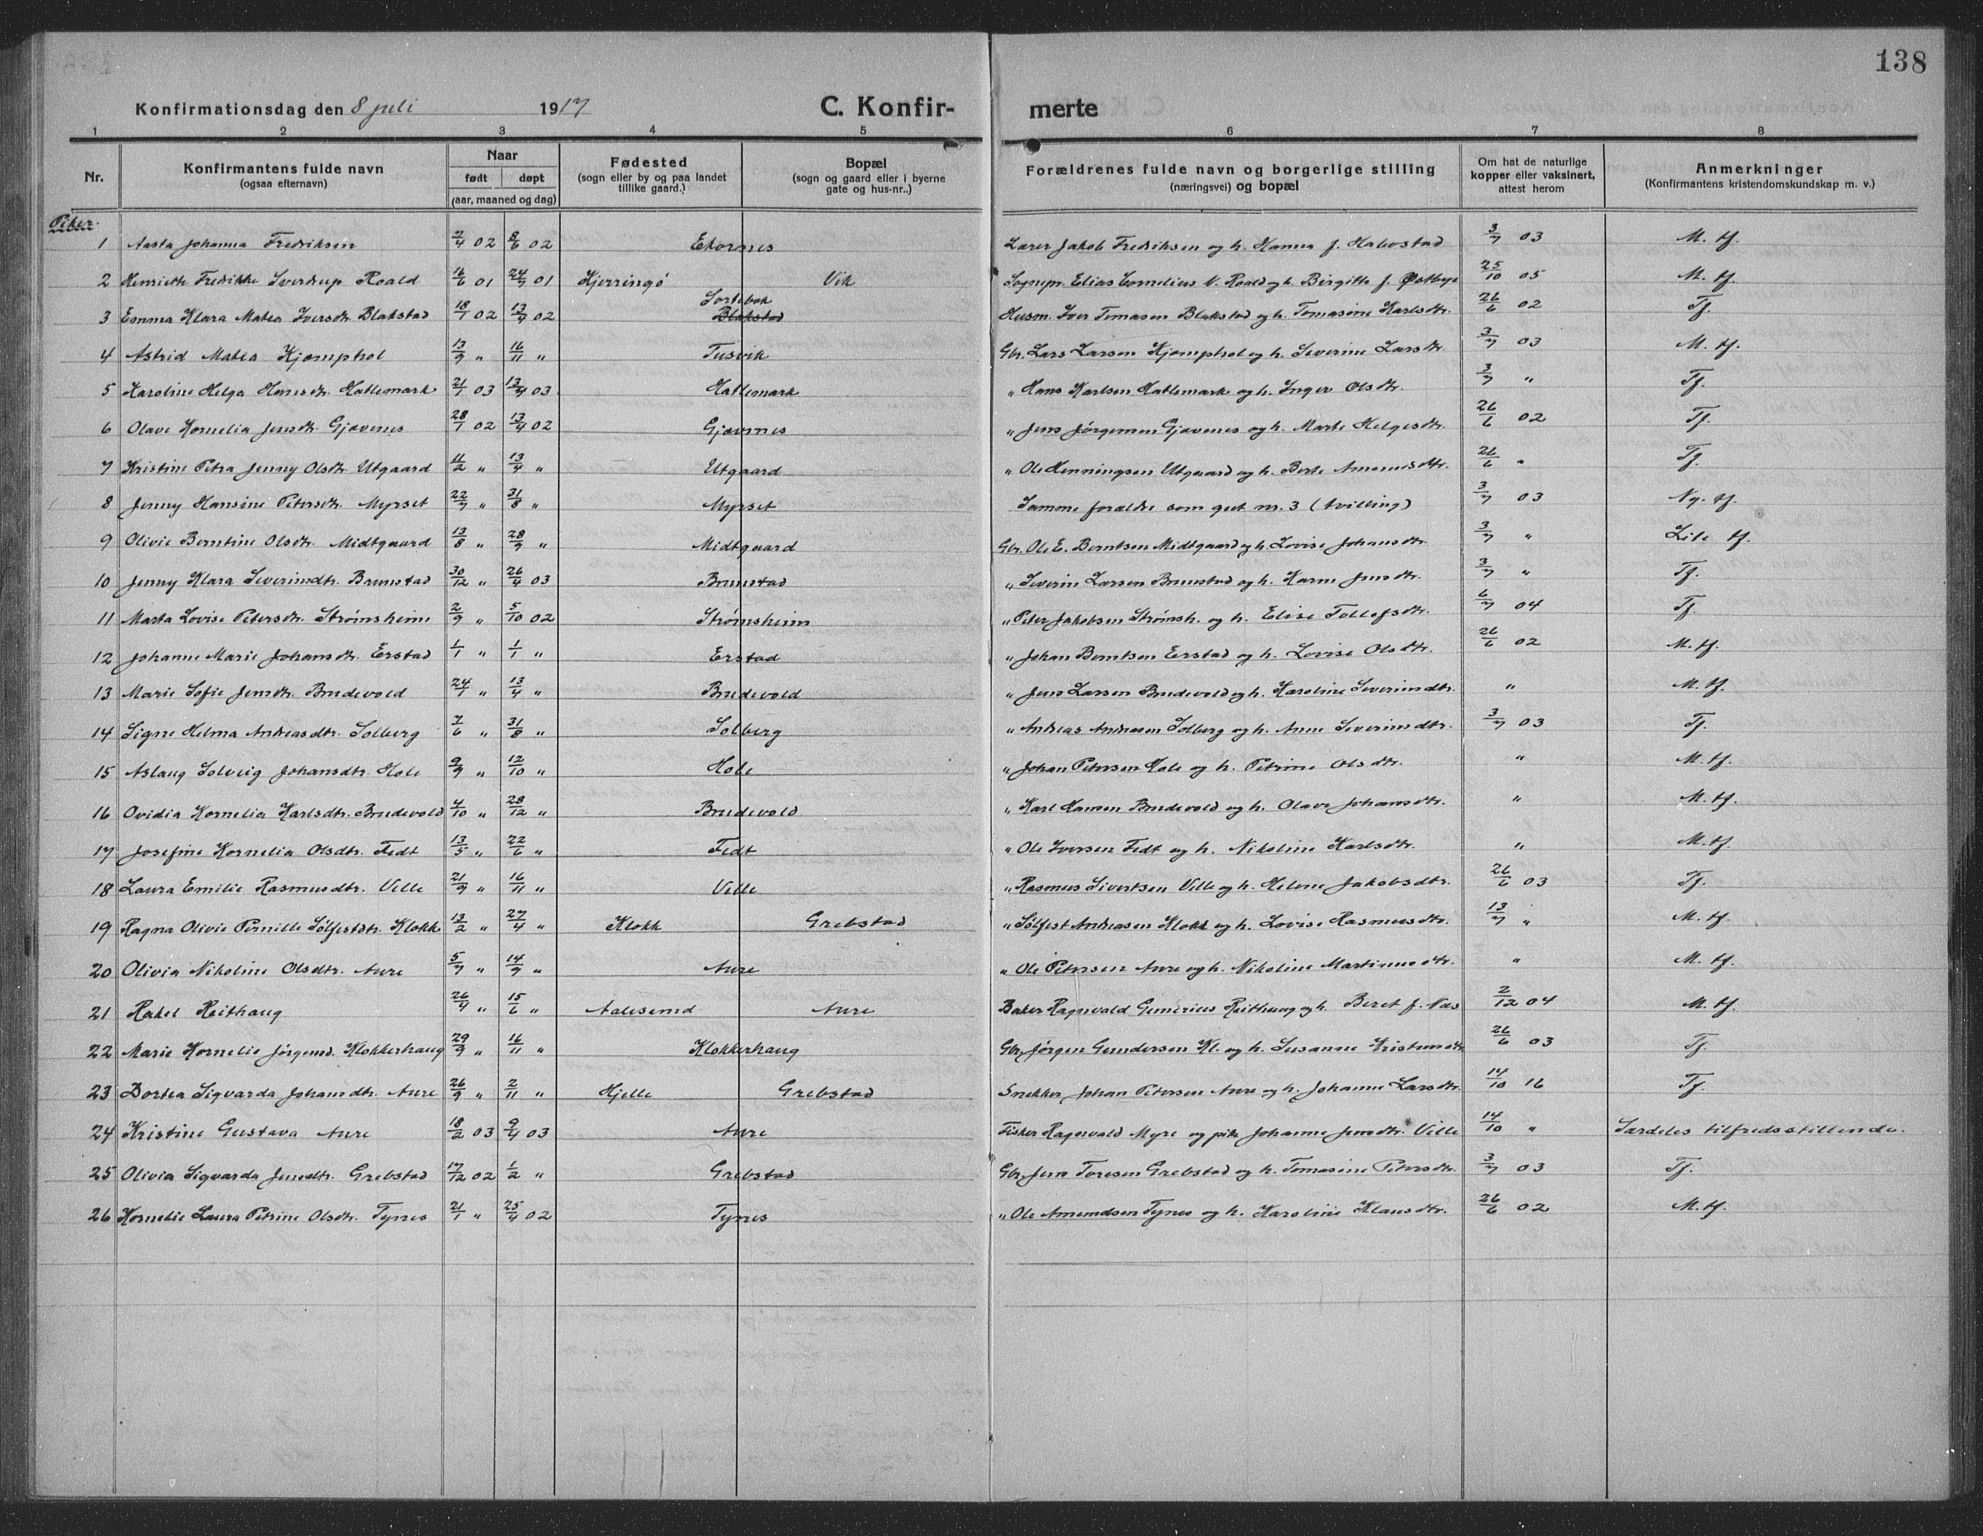 138
Konfirmationsdag den 8 juli 1917 C. Konfir- merte
1 2 3 4 5 6 7 8
Nr. Konfirmantens fulde navn (ogsaa efternavn) Naar født døpt (aar, maaned og dag) Fødested (sogn eller by og paa landet tillike gaard.) Bopæl (sogn og gaard eller i byerne gate og hus-nr..) Forældrenes fulde navn og borgerlige stilling (næringsvei) og bopæl Om hat de naturlige kopper eller vaksinert, attest herom Anmerkninger (Konfirmantens kristendomskundskap m. v.)
Piker.
1 Aasta Johanna Fredriksen 7/4 02 8/6 02 Ekornes Lærer Jakob Fredriksen og h. Hanna f. Halvostad 3/7 03 M. tf.
2 Henriette Fredrikke Sverdrup Roald 16/6 01 24/7 01 Kjerringø Vik Sognepr. Elias Cornelius V. Roald og h. Birgitte f. Østbye 25/10 05 M. tf.
3 Emma Klara Matea Iversdtr. Blakstad 18/1 02 13/4 02 Sortebok Blakstad Husm. Iver Tomasen Blakstad og h. Tomasine Karlsdtr. 26/6 02 Tf.
4 Astrid Matea Kjemphol 13/9 " 16/11 " Tusvik Gbr. Lars Larsen Kjemphol og h. Severine Larsdtr. 3/7 03 M. tf.
5 Karoline Helga Hansdtr. Hatlemark 21/1 03 13/4 03 Hatlemark " Hans Karlsen Hatlemark og h. Inger Olsdtr. 3/7 " Tf.
6 Olave Kornelia Jensdtr. Gjævenes 28/1 02 13/4 02 Gjævnes " Jens Jørgensen Gjævenes og h. Marte Helgesdtr. 26/6 02 Tf.
7 Kristine Petra Jenny Olsdtr. Utgaard 11/2 " 13/4 " Utgaard " Ole Henningsen Utgaard og h. Berte Amundsdtr. 26/6 " Tf.
8 Jenny Hansine Petersdtr. Myrset 22/7 " 31/8 " Myrset Samme forældre som gut nr. 3 (tvilling) 3/7 03 Ng. tf.
9 Olivie Berntine Olsdtr. Midtgaard 13/8 " 28/9 " Midtgaard Gbr. Ole E. Berntsen Midtgaard og h. Lovise Johansdtr. 3/7 " Lite tf.
10 Jenny Klara Severinsdtr. Brunstad 30/12 " 26/4 03 Brunstad " Severin Larsen Brunstad og h. Karne Jensdtr. 3/7 " Tf.
11 Marta Lovise Petersdtr. Strømsheim 2/9 " 5/10 02 Strømsheim " Peter Jakobsen Strømsh. og h. Elise Tollefsdtr. 6/7 04 Tf.
12 Johanne Marie Johansdtr. Erstad 1/1 " 1/1 " Erstad " Johan Berntsen Erstad og h. Lovise Olsdtr. 26/6 02 M. tf.
13 Marie Sofie Jensdtr. Brudevold 24/1 " 13/4 " Brudevold " Jens Larsen Brudevold og h. Karoline Severinsdtr. " M. tf.
14 Signe Helma Andreasdtr. Solberg 7/6 " 31/8 " Solberg " Andreas Andreasen Solberg og h. Anne Severinsdtr. 3/7 03 Tf.
15 Aslaug Solveig Johansdtr. Hole 9/9 " 12/10 " Hole " Johan Petersen Hole og h. Petrine Olsdtr. " M. tf.
16 Ovidia Kornelia Karlsdtr. Brudevold 4/10 " 28/12 " Brudevold " Karl Hansen Brudevold og h. Olave Johansdtr. " M. tf.
17 Josefine Kornelia Olsdtr. Fedt 13/5 " 22/6 " Fedt " Ole Iversen Fedt og h. Nikoline Karlsdtr. " M. tf.
18 Laura Emilie Rasmusdtr. Velle 21/9 " 16/11 " Velle " Rasmus Sivertsen Velle og h. Helene Jakobsdtr. 26/6 03 Tf.
19 Ragna Olivie Pernille Sølfestdtr. Klokk 13/2 " 27/4 " Klokk Grebstad " Sølfest Andreasen Klokk og h. Lovise Rasmusdtr. 13/7 " M. tf.
20 Olivia Nikoline Olsdtr. Aure 5/7 " 14/9 " Aure " Ole Petersen Aure og h. Nikoline Martinusdtr. " M. tf.
21 Rakel Reithaug 26/4 " 15/6 " Aalesund Aure Baker Ragnvald Gunerius Reithaug og h. Beret f. Næs 2/12 04 M. tf.
22 Marie Kornelie Jørgensd. Klokkerhaug 29/9 " 16/11 " Klokkerhaug Gbr. Jørgen Gundersen Kl. og h. Susanne Kristensdtr. 26/6 03 Tf.
23 Dortea Sigvarda Johansdtr. Aure 26/9 " 2/11 " Hjelle Grebstad Snekker Johan Petersen Aure og h. Johanne Larsdtr. 14/10 16 Tf.
24 Kristine Gustava Aure 18/2 03 9/4 03 Aure Fisker Ragnvald Myre og pike Johanne Jensdtr. Velle 14/10 " Særdeles tilfredsstillende.
25 Olivia Sigvarda Jensdtr. Grebstad 17/12 02 1/2 " Grebstad Gbr. Jens Toresen Grebstad og h. Tomasine Petersdtr. 3/7 03 Tf.
26 Kornelie Laura Petrine Olsdtr. Tynes 21/1 " 25/4 02 Tynes " Ole Amundsen Tynes og h. Karoline Klausdtr. 26/6 02 M. tf.